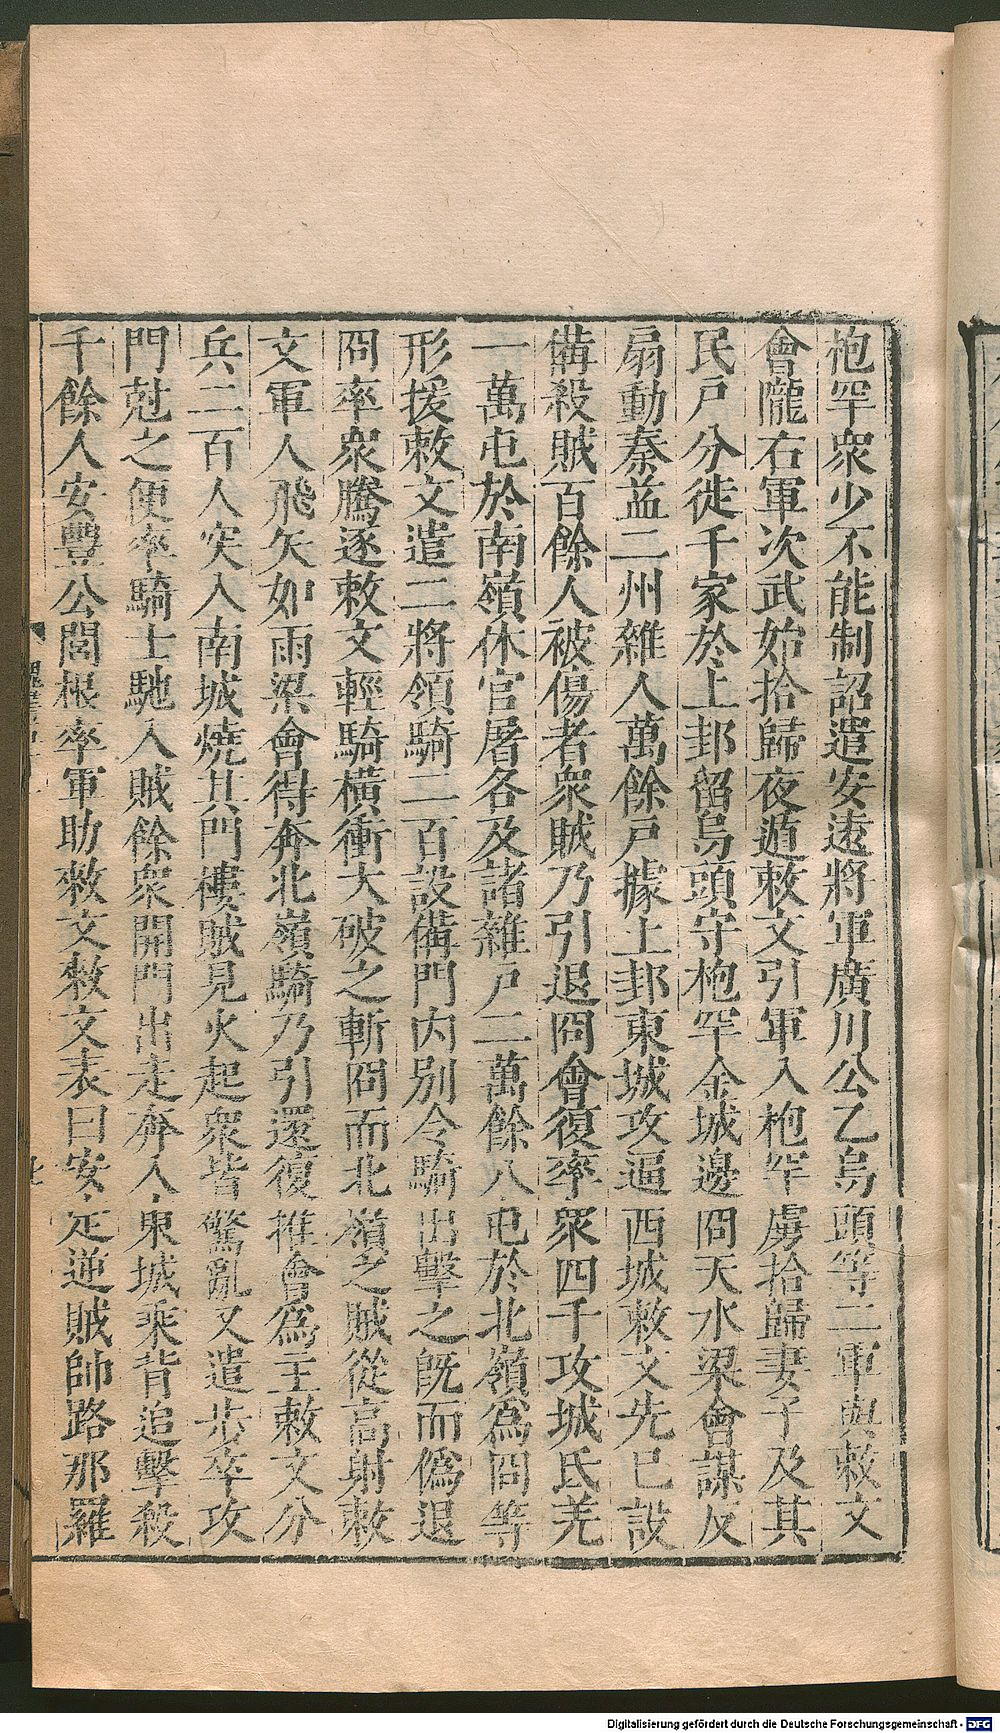 枹罕衆少不能制詔遣安遠將軍廣川公乙烏頭等二軍與敕文
會隴右軍次武始拾歸夜遁敕文引軍入枹罕虜拾歸妻子及其
民戶分徙千家於上邽留烏頭守枹罕金城邊冏天水梁會謀反
扇動秦益二州雜人萬餘戶據上邽東城攻逼西城敕文先已設
備殺賊百餘人被傷者衆賊乃引退冏會復率衆四千攻城氐羌
一萬屯於南嶺休官屠各及諸雜戶二萬餘人屯於北嶺爲冏等
形援敕文遣二將領騎二百設備門內別令騎出擊之既而僞退
冏率衆騰逐敕文輕騎橫衝大破之斬冏而北嶺之賊從高射敕
文軍人飛矢如雨梁會得奔北嶺騎乃引還復推會爲主敕文分
兵二百人突入南城燒其門樓賊見火起衆皆驚亂又遣步卒攻
門尅之便率騎士馳入賊餘衆開門出走奔入東城乘背追擊殺
千餘人安豐公閭根率軍助敕文敕文表曰安定逆賊帥路那羅
Digitalisierung gefördert durch die Deutsche Forschungsgemeinschaft - DFG